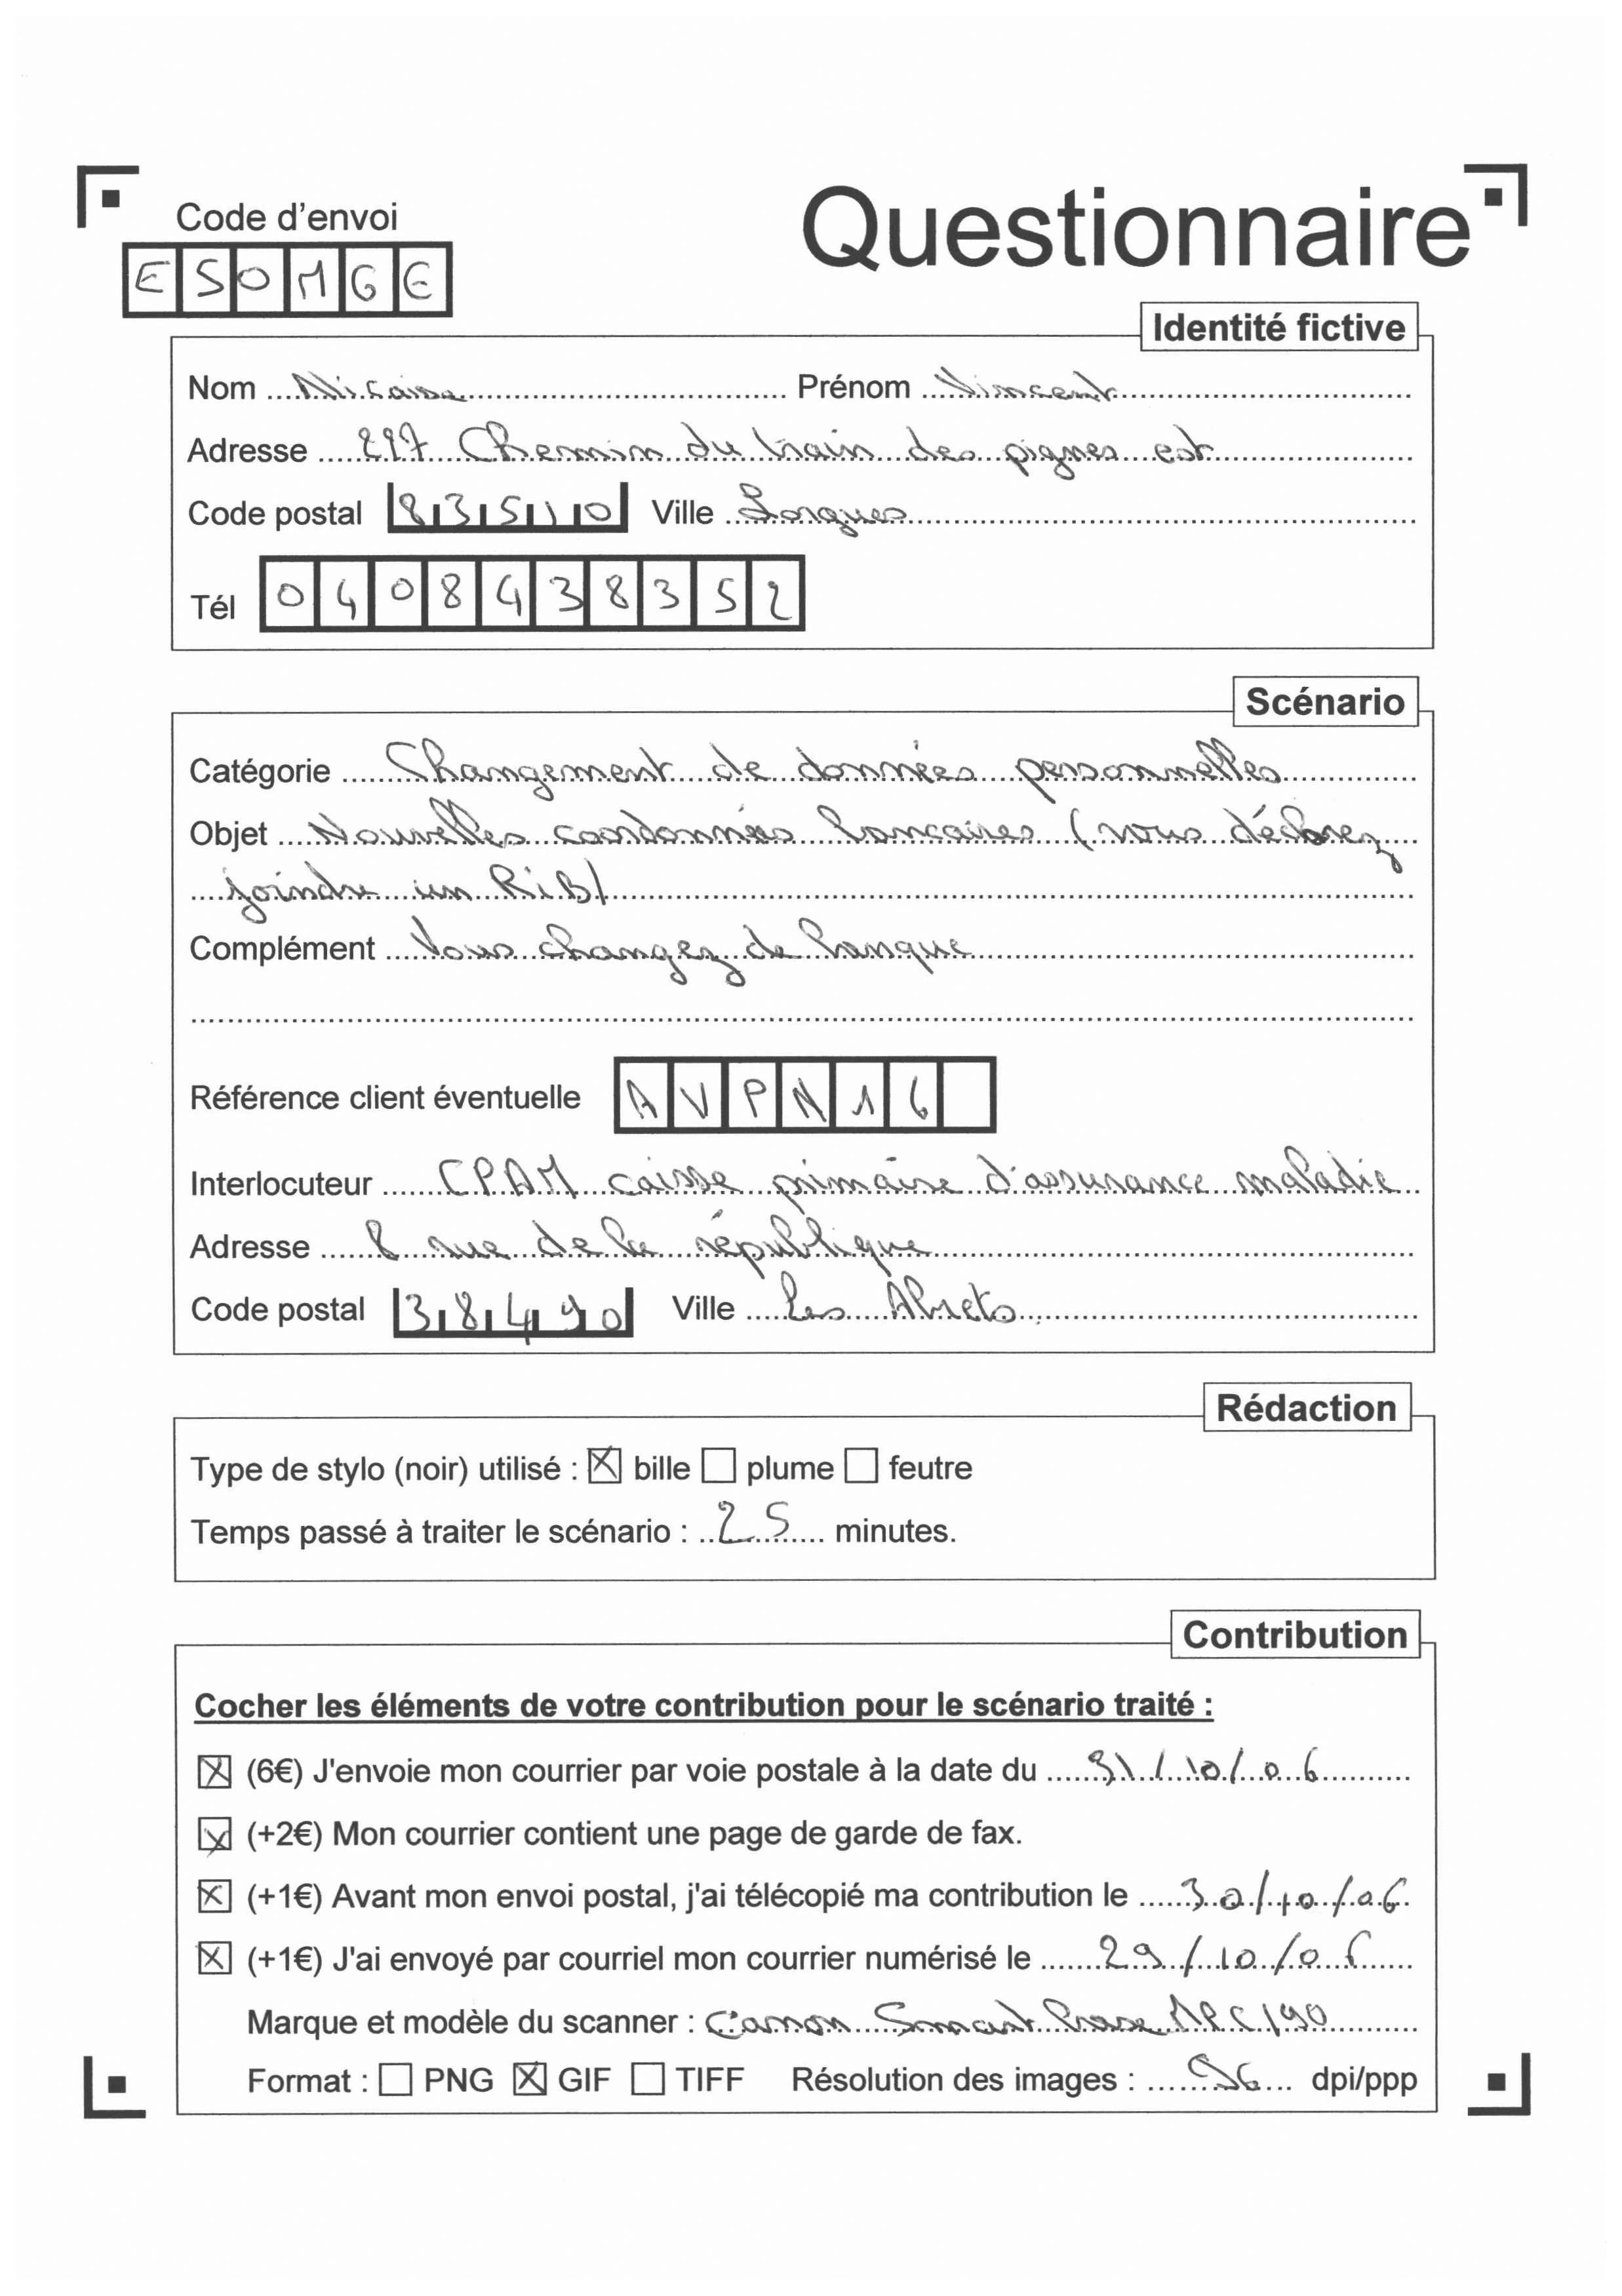 Questionnaire
Code d'envoi
ESOMGE
Identité fictive
Nom Nicaise Prénom Vincent
Adresse 297 Chemin du train des pignes est
Code postal 83510 Ville Lorgues
Tél 0408438352
Scénario
Catégorie Changement de données personnelles
Objet Nouvelles coordonnées bancaires (vous déclarez
joindre un RiB)
Complément Vous changez de banque
Référence client éventuelle AVPN16
Interlocuteur CPAM caisse primaire d'assurance maladie
Adresse 8 rue de la république
Code postal 38490 Ville Les Abrets
Rédaction
Type de stylo (noir) utilisé : ☒ bille ☐ plume ☐ feutre
Temps passé à traiter le scénario : 25 minutes.
Contribution
Cocher les éléments de votre contribution pour le scénario traité :
☒ (6€) J'envoie mon courrier par voie postale à la date du 31/10/06
☒ (+2€) Mon courrier contient une page de garde de fax.
☒ (+1€) Avant mon envoi postal, j'ai télécopié ma contribution le 30/10/06
☒ (+1€) J'ai envoyé par courriel mon courrier numérisé le 29/10/06
Marque et modèle du scanner : Canon Smart base
Format : ☐ PNG ☒ GIF ☐ TIFF Résolution des images : 96 dpi/ppp